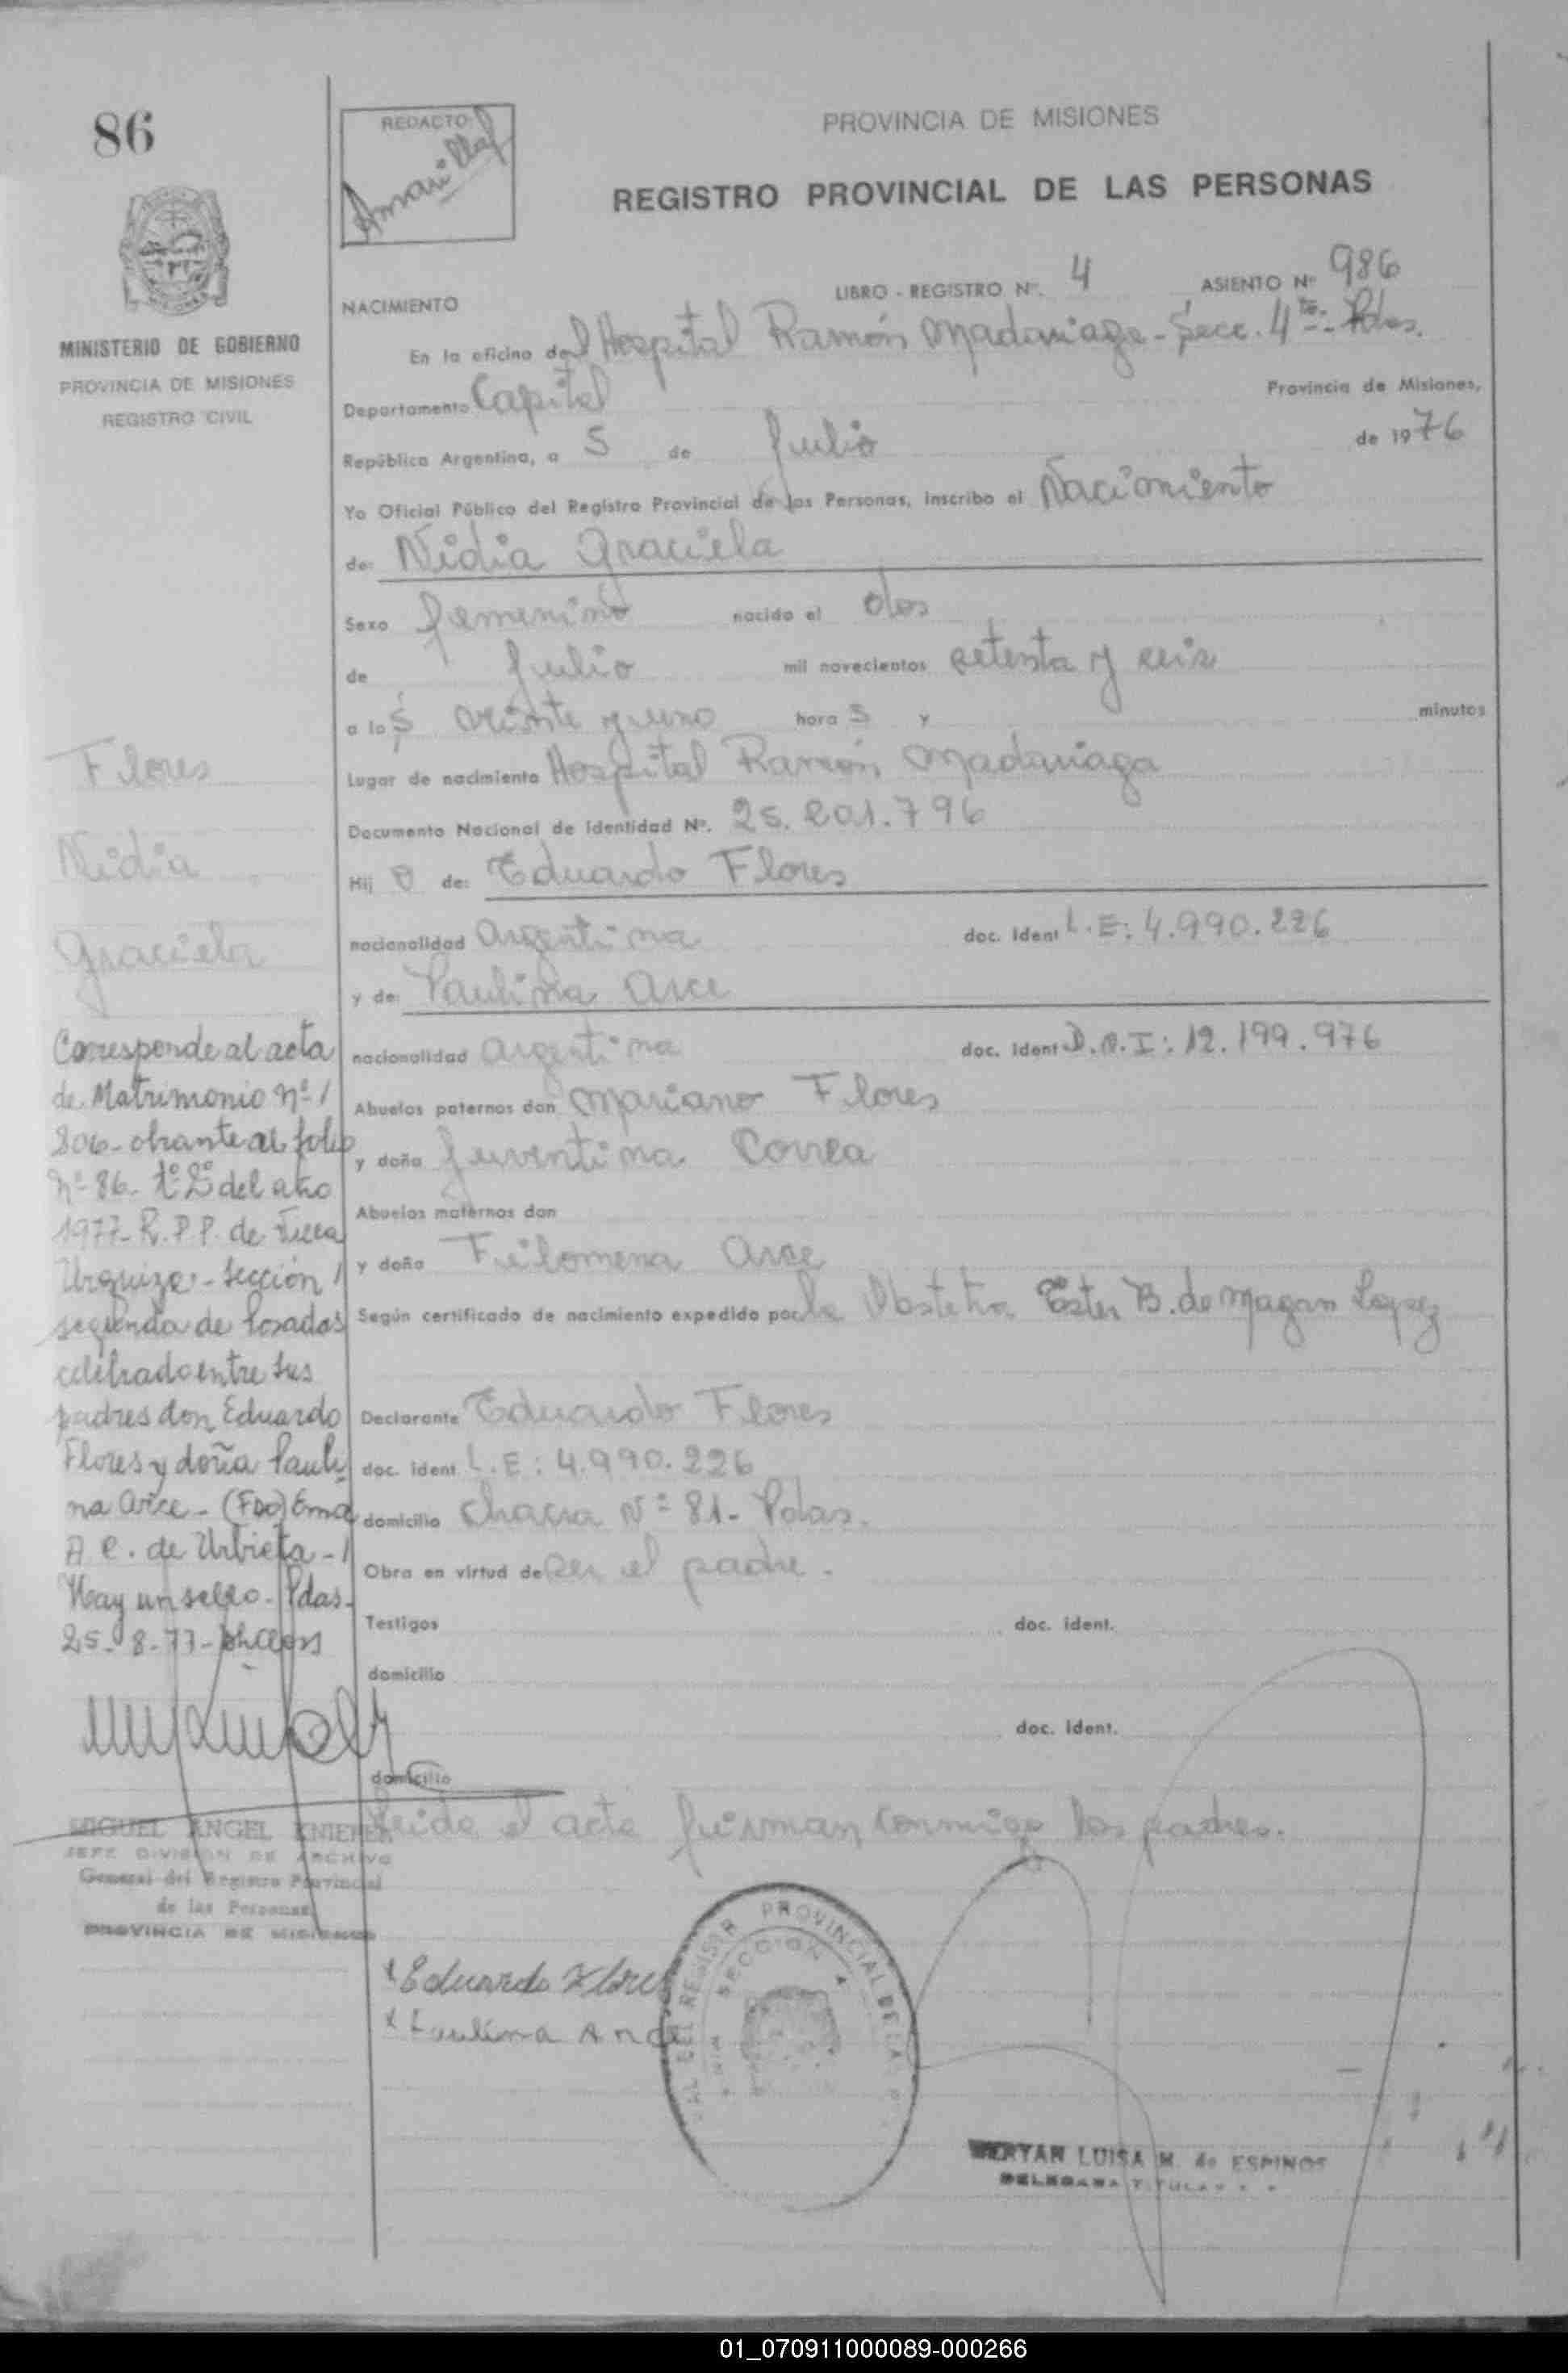 86
REDACTO
PROVINCIA DE MISIONES
REGISTRO PROVINCIAL DE LAS PERSONAS
LIBRO - REGISTRO Nº. 4 ASIENTO Nº 986
NACIMIENTO
En la oficina del Hospital Ramón Madariaga - Secc. 4ta. - Pdas.
Departamento Capital Provincia de Misiones,
República Argentina, a 5 de Julio de 1976
Yo Oficial Público del Registro Provincial de las Personas, inscribo el Nacimiento
de: Nidia Graciela
Sexo femenino nacido el dos
de Julio mil novecientos setenta y seis
a las veinte y uno horas y minutos
Lugar de nacimiento Hospital Ramón Madariaga
Documento Nacional de Identidad Nº. 25.201.796
Hij de: Eduardo Flores
nacionalidad Argentina doc. ident L.E: 4.990.226
y de: Paulina Arce
nacionalidad Argentina doc. ident D.N.I: 12.199.976
Abuelos paternos don Mariano Flores
y doña Juventina Correa
Abuelos maternos don
y doña Filomena Arce
Según certificado de nacimiento expedido por la Obstetra Ester B. de Magan Lopez
Declarante Eduardo Flores
doc. ident L.E: 4.990.226
domicilio Chacra Nº 81- Pdas.
Obra en virtud de ser el padre.
Testigos doc. ident.
domicilio
doc. ident.
domicilio
Leida el acta firman conmigo los padres.
Eduardo Flores
Paulina Arce
MINISTERIO DE GOBIERNO
PROVINCIA DE MISIONES
REGISTRO CIVIL
Flores
Nidia
Graciela
Corresponde al acta
de Matrimonio Nº /
806- obrante al folio
Nº 86- tº 2º del año
1977- R.P.P. de Villa
Urquiza - Sección /
segunda de Posadas
celebrado entre sus
padres don Eduardo
Flores y doña Pauli
na Arce - (Fdo) Ema
A C. de Urbieta - /
Hay un sello. Pdas.
25-8-77-
MIGUEL ANGEL KNIEPER
JEFE DIVISION DE ARCHIVO
General del Registro Provincial
de las Personas
PROVINCIA DE MISIONES
REGISTR PROVINCIAL DE LA
SECCION 4
LUISA M. de ESPINOS
DELEGADA TITULAR
01_070911000089-000266